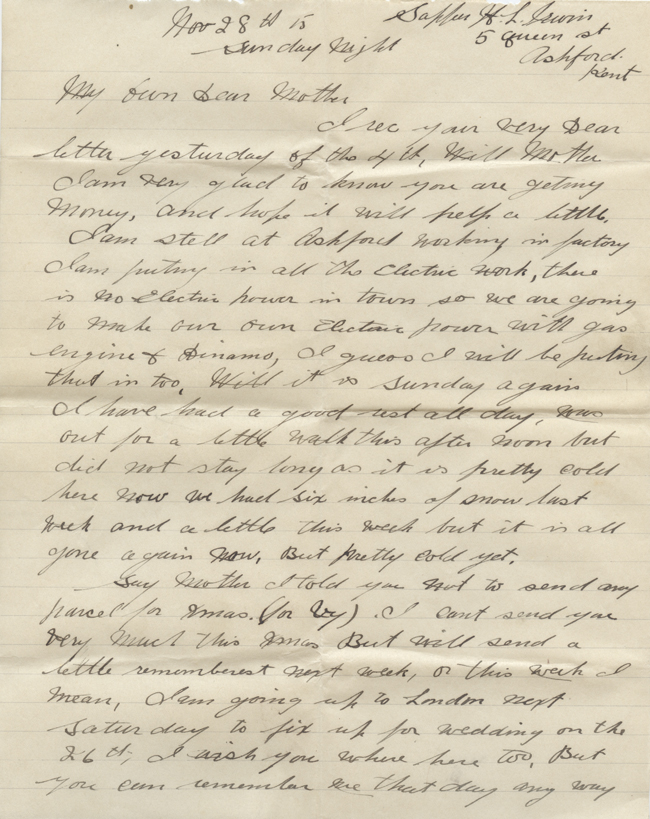 Nov 28th 15
Sunday Night
Sapper H. L. Irwin
5 Queen st
Ashford.
Kent
My Own Dear Mother
I rec your very Dear
letter yesterday of the 4th, Will Mother
I am very glad to know you are geting
Money, and hope it will help a little.
I am still at Ashford working in factory
I am puting in all the Electric work, there
is no Electric power in town so we are going
to make our own Electric power with gas
engine & Dinamo, I guess I will be puting
that in too, Will it is Sunday again
I have had a good rest all day, was
out for a little walk this after noon but
did not stay long as it is pretty cold
here now we had six inches of snow last
week and a little this week but it is all
gone again now, But pretty cold yet.
Say Mother I told you not to send any
parcel for Xmas. (for Vy). I cant send you
very much this Xmas But will send a
little rememberest next week, or this week I
mean, I am going up to London next
Saturday to fix up for wedding on the
26th, I wish you where here too, But
you can remember me that day any way